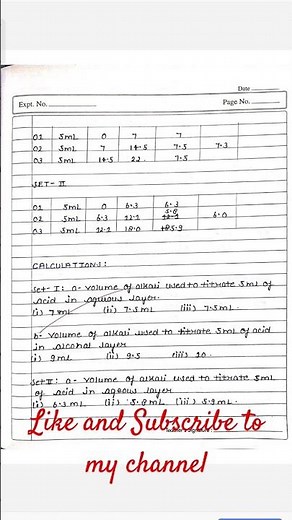 Date
Expt. No.
Page No.
01 5mL 0 7 7
02 5mL 7 14.5 7.5 7.3
03 5mL 14.5 22. 7.5
SET- II
01 5mL 0 6.3 6.3
02 5mL 6.3 12.1 5.8 12.1 6.0
03 5mL 12.1 18.0 5.9
CALCULATIONS:
Set- I: a- volume of alkali used to titrate 5mL of
acid in aqueous layer.
(i) 7mL (ii) 7.5mL (iii) 7.5mL.
b- volume of alkali used to titrate 5mL of acid
in alcohol layer
(i) 9mL (ii) 9.5 (iii) 10.
Set II: a- volume of alkali used to titrate 5mL
of acid in aqeous layer
(i) 6.3mL (ii) 5.8mL (iii) 5.9mL.
Like and Subscribe to
my channel